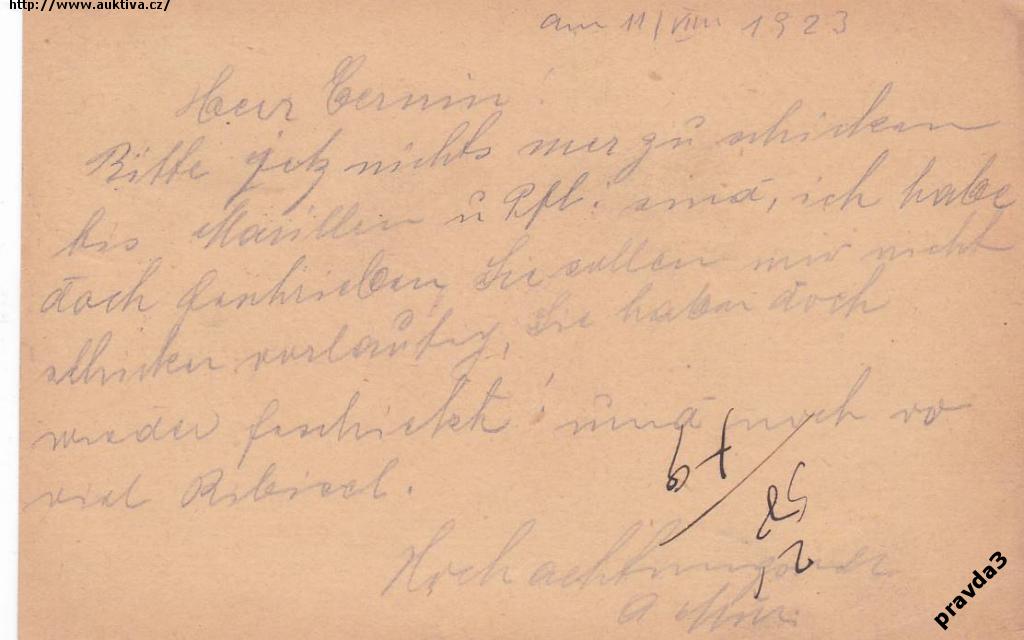 http://www.auktiva.cz/
am 11/VIII 1923
Herr Cernin!
Bitte jetz nichts mer zu schicken
bis Marillen u Pfl: sind, ich habe
doch geschrieben, Sie sollen mir nicht
schicken vorläufig, Sie haben doch
wieder geschickt! und noch so
viel Ribisel.
Hochachtungsvoll
pravda3